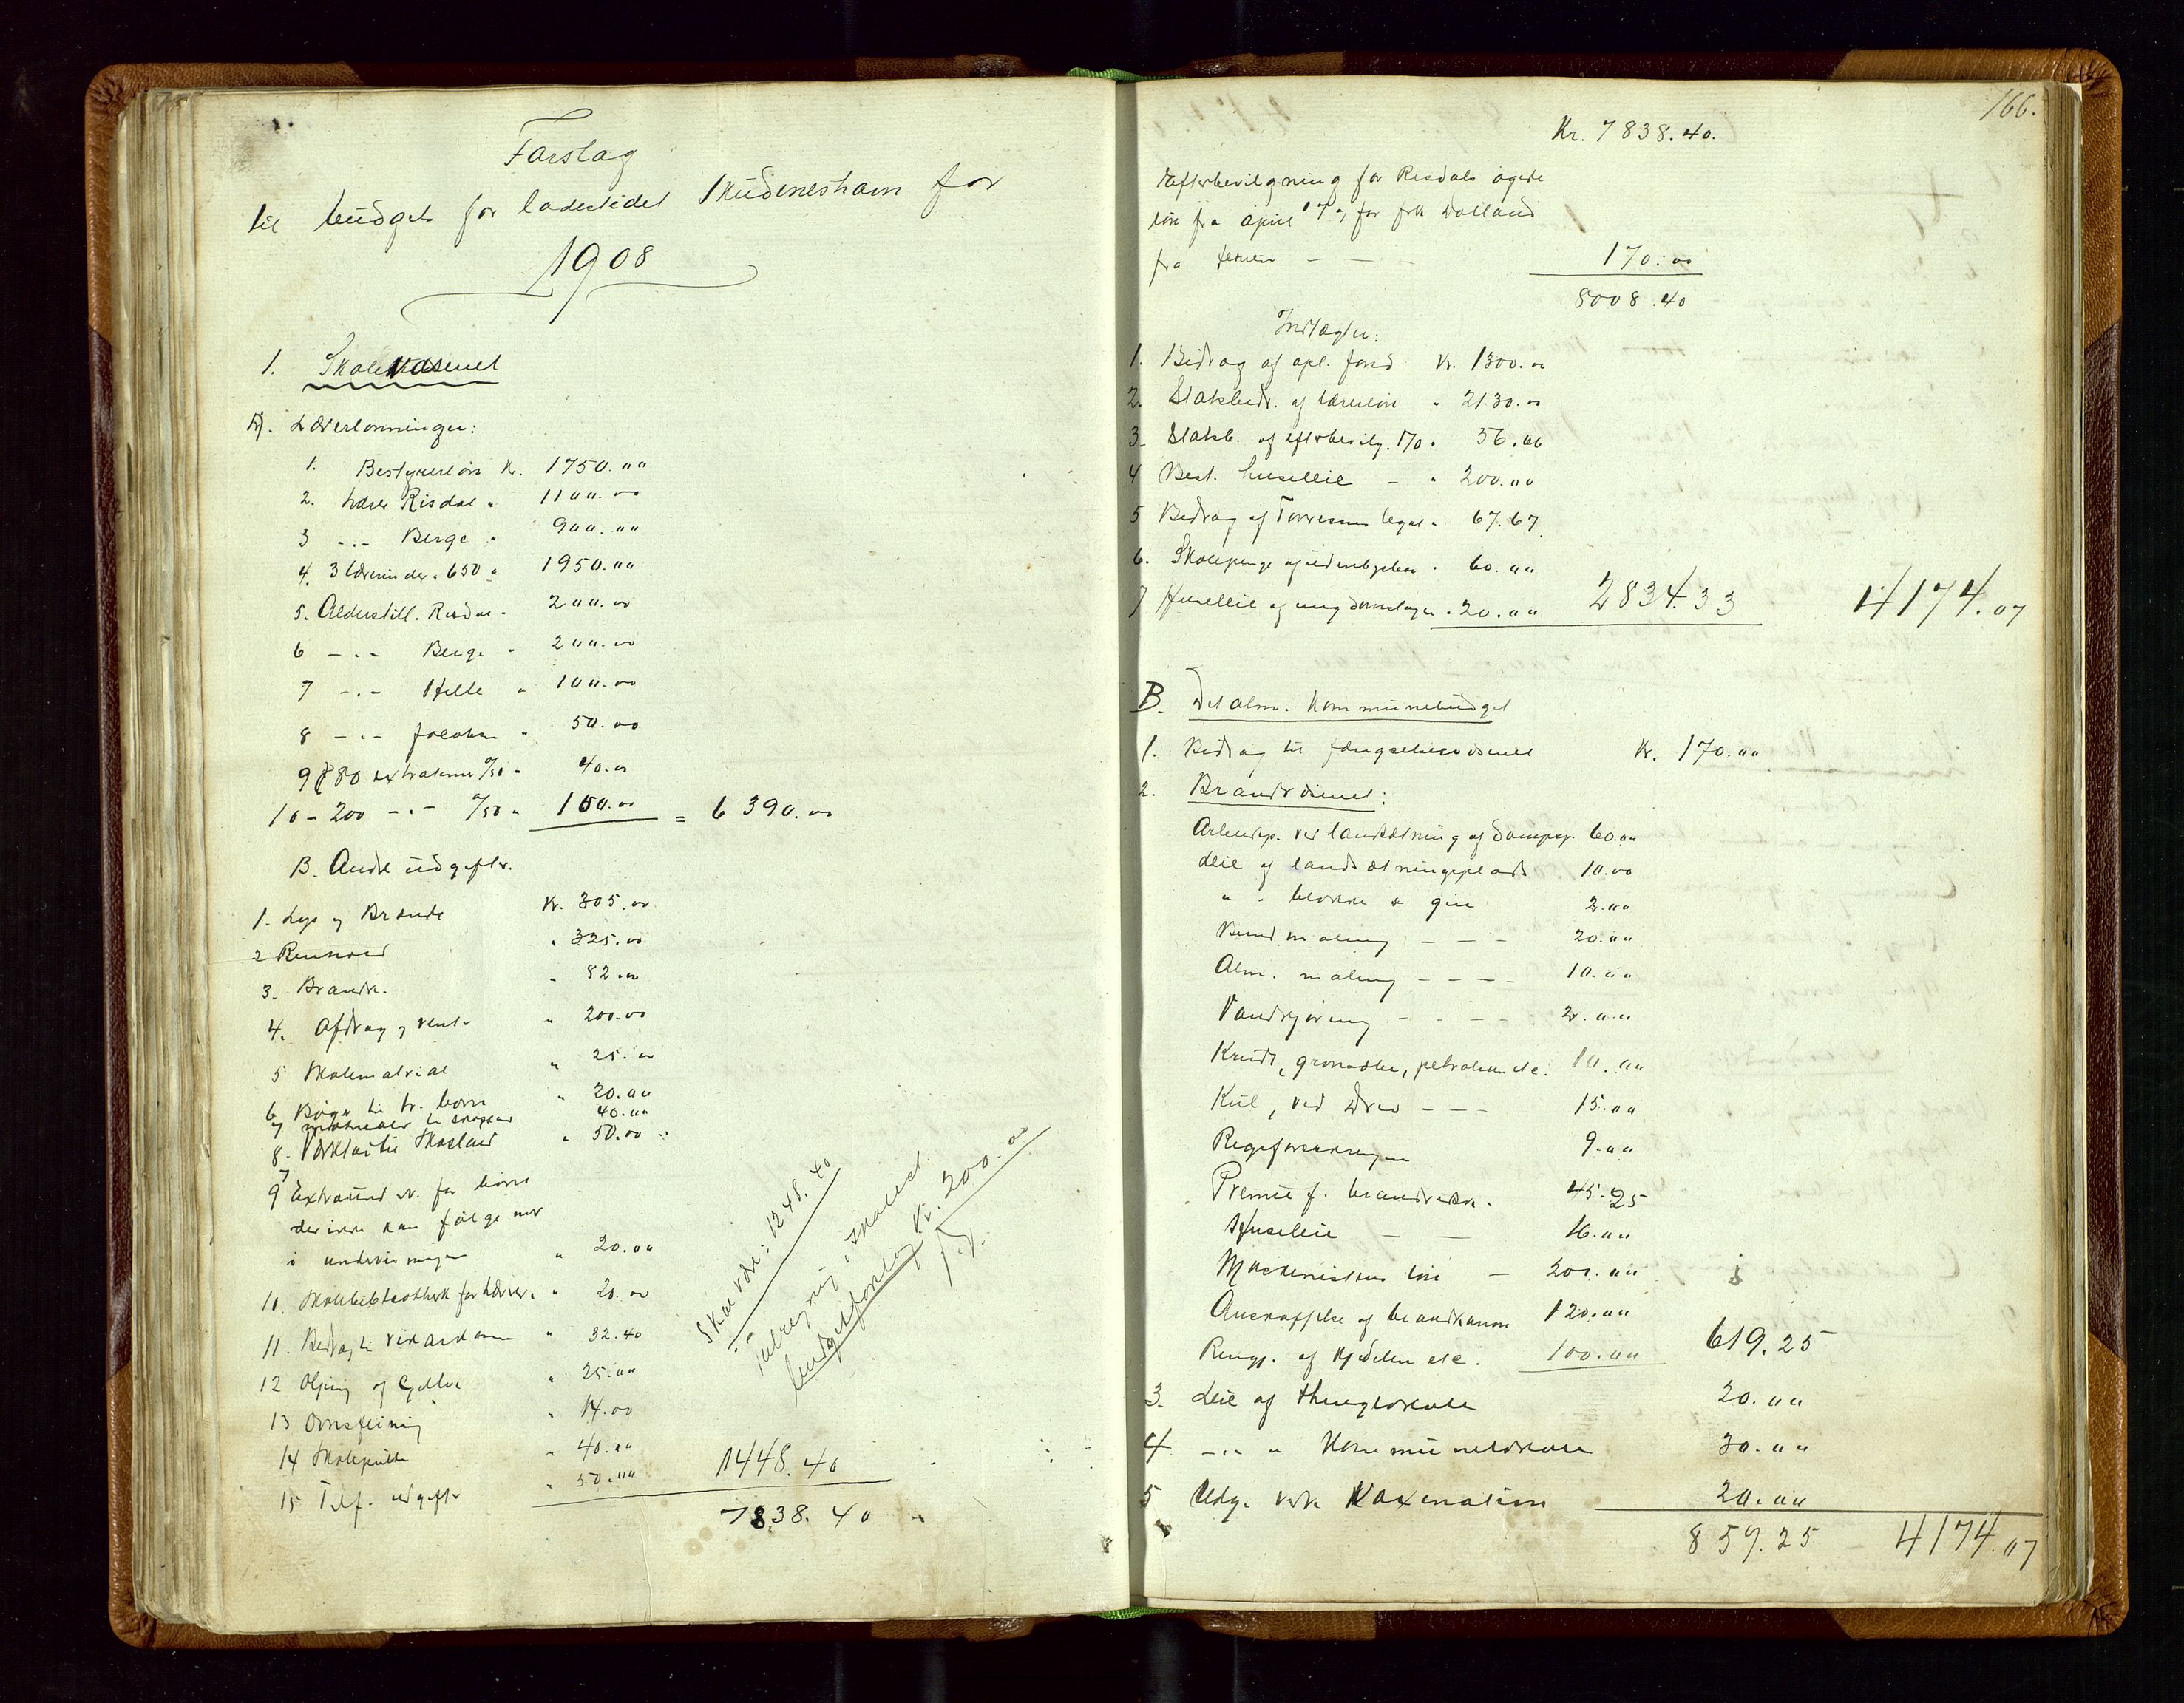 Forslag
til budget for ladestedet Skudeneshavn for
1908
1. Skolevæsenet
A. Lærerlønninger:
1. Bestyrerløn Kr. 1750.00
2. Lærer Risdal " 1100.00
3 -"- Berge " 900.00
4. 3 lærerinder à 650 " 1950.00
5. Alderstill. Risdal " 200.00
6 -"- Berge " 200.00
7 -"- Helle " 100.00
8 -"- Jacobsen " 50.00
9 80 extratimer à/50 " 40.00
10 - 200 -"- à/50 " 100.00 = 6390.00
B. Andre udgifter.
1. Lys og Brænde Kr. 305.00
2 Renhold " 325.00
3. Brandk. " 82.00
4. Afdrag og renter " 200.00
5 Skolemateriel " 25.00
6 Bøger til fr. børn " 20.00
7 materialer til 40.00
8. Værktøi til " 50.00
9 Extraund.v. for børn
der ikke kan følge med
i undervisningen " 20.00
10. Skolebibliothek for lærere " 20.00
11. Bedrag til " 32.40
12 Oljing af Gulve " 25.00
13 Ovnsfeining " 14.00
14 Skolepulte " 40.00
15 Tilf. udgifter " 50.00 1448.40
7838.40
Skal være: 1248.40
feilregning i skolens
budgetforslag Kr. 200.00
166.
Kr. 7838.40.
Efterbevilgning for Risdals øgede
løn fra april 07, for frk Dolland
fra ferien - - - 170.00
8008.40
Indtægter:
1. Bidrag af opl. fond Kr. 1300.00
2. Statsbidr. af lærerløn " 2130.00
3. Statsb. af efterbevilg. 170 " 56.66
4 Best. husleie - " 200.00
5 Bidrag af Torresens legat " 67.67
6. Skolepenge af udenbysbørn " 60.00
7 Husleie af ungdomslaget " 20.00 2834.33 4174.07
B. Det alm. Kommunebudget
1. Bidrag til fængselsvæsenet Kr. 170.00
2. Brandvæsenet:
Arbeidsp. ved landsætning af dampsp. 60.00
Leie af landsætningsplads 10.00
" " blokke & gie 2.00
Bund maling - - - 20.00
Alm. maling - - - - 10.00
Vandkjøring - - - - 2.00
Krudt, granater, petroleum etc. 10.00
Kul, ved Drev - - - 15.00
9.00
Premie f. brandvæsn. 45.25
Husleie - - 16.00
Maskinistens løn - 200.00
Anskaffelse af brandkanon 120.00
Rengj. af kjedelen etc. 100.00 619.25
3. Leie af thinglokale 20.00
4 -"- " Kommunelokale 30.00
5 Udg. ved. Vaxination 20.00
859.25 4174.07